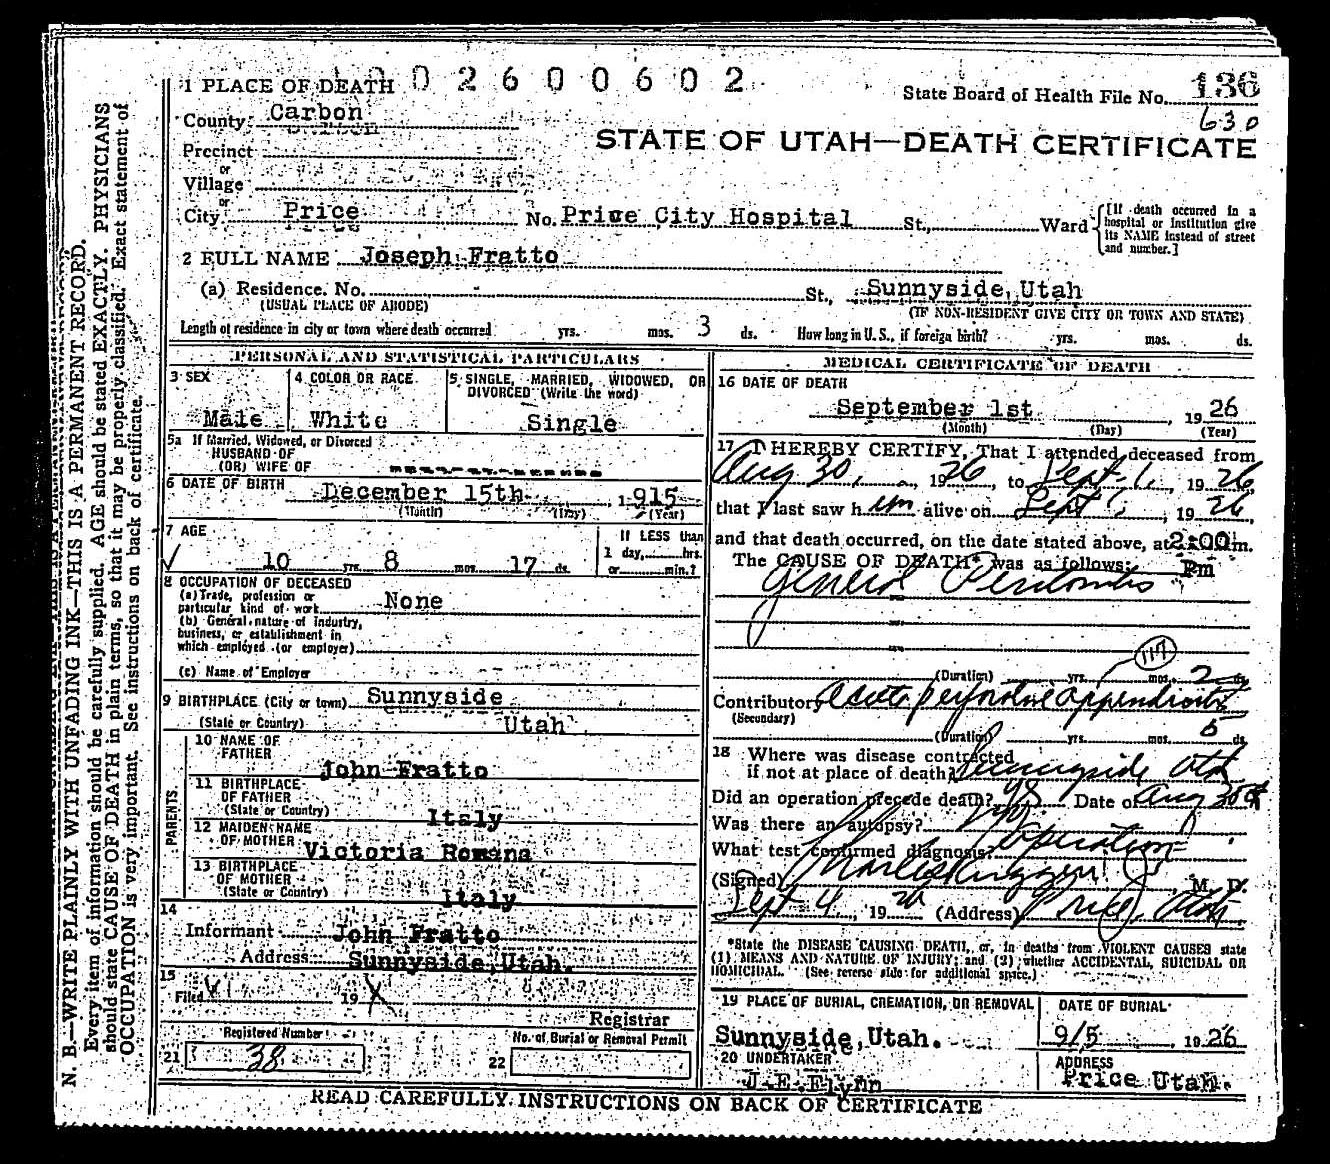 002600602
1 PLACE OF DEATH
State Board of Health File No. 136
630
County Carbon
STATE OF UTAH—DEATH CERTIFICATE
Precinct
or
Village
or
City Price No. Price City Hospital St., Ward
[If death occurred in a
hospital or institution give
its NAME instead of street
and number.]
2 FULL NAME Joseph Fratto
(a) Residence. No. St., Sunnyside, Utah
(USUAL PLACE OF ABODE) (IF NON-RESIDENT GIVE CITY OR TOWN AND STATE)
Length of residence in city or town where death occurred yrs. mos. 3 ds. How long in U.S., if foreign birth? yrs. mos. ds.
PERSONAL AND STATISTICAL PARTICULARS
3 SEX 4 COLOR OR RACE 5 SINGLE, MARRIED, WIDOWED, OR
DIVORCED (Write the word)
Male White Single
5a If Married, Widowed, or Divorced
HUSBAND OF
(OR) WIFE OF
6 DATE OF BIRTH December 15th 1915
(Month) (Day) (Year)
7 AGE If LESS than
1 day, hrs.
10 yrs. 8 mos. 17 ds. or min.?
8 OCCUPATION OF DECEASED
(a) Trade, profession or
particular kind of work None
(b) General nature of industry,
business, or establishment in
which employed (or employer)
(c) Name of Employer
9 BIRTHPLACE (City or town) Sunnyside
(State or Country) Utah
PARENTS
10 NAME OF
FATHER
John Fratto
11 BIRTHPLACE
OF FATHER
(State or Country) Italy
12 MAIDEN NAME
OF MOTHER
Victoria Romana
13 BIRTHPLACE
OF MOTHER
(State or Country) Italy
14
Informant John Fratto
Address Sunnyside, Utah.
15
Filed 19
Registrar
Registered Number No. of Burial or Removal Permit
21 38 22
MEDICAL CERTIFICATE OF DEATH
16 DATE OF DEATH
September 1st 1926
(Month) (Day) (Year)
17 I HEREBY CERTIFY, That I attended deceased from
Aug 30, 1926 to Sept 1, 1926,
that I last saw him alive on Sept 1, 1926,
and that death occurred, on the date stated above, at 2:00 m.
The CAUSE OF DEATH* was as follows: Pm
General Peritonitis
117
(Duration) yrs. mos. 2 ds.
Contributory Acute perforative appendicitis
(Secondary)
(Duration) yrs. mos. 5 ds.
18 Where was disease contracted
if not at place of death? Sunnyside Utah
Did an operation precede death? yes Date of Aug 30
Was there an autopsy? no
What test confirmed diagnosis? operation
(Signed) M. D.
Sept 4, 1926 (Address) Price, Utah
*State the DISEASE CAUSING DEATH, or, in deaths from VIOLENT CAUSES state
(1) MEANS AND NATURE OF INJURY; and (2) whether ACCIDENTAL, SUICIDAL OR
HOMICIDAL. (See reverse side for additional space.)
19 PLACE OF BURIAL, CREMATION, OR REMOVAL DATE OF BURIAL
Sunnyside, Utah. 9/5 1926
20 UNDERTAKER ADDRESS
J.E. Flynn Price Utah.
READ CAREFULLY INSTRUCTIONS ON BACK OF CERTIFICATE
N. B.—WRITE PLAINLY WITH UNFADING INK—THIS IS A PERMANENT RECORD.
Every item of information should be carefully supplied. AGE should be stated EXACTLY. PHYSICIANS
should state CAUSE OF DEATH in plain terms, so that it may be properly classified. Exact statement of
OCCUPATION is very important. See instructions on back of certificate.